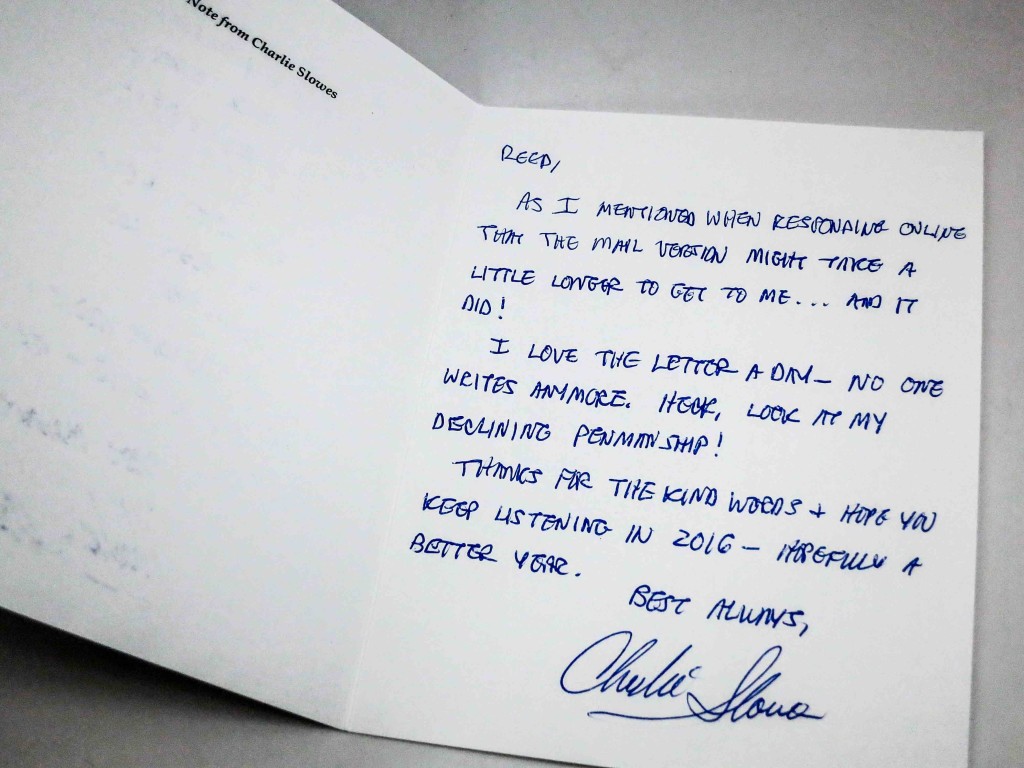 Note from Charlie Slowes
REED,
AS I MENTIONED WHEN RESPONDING ONLINE
THAT THE MAIL VERSION MIGHT TAKE A
LITTLE LONGER TO GET TO ME... AND IT
DID!
I LOVE THE LETTER A DAY— NO ONE
WRITES ANYMORE. HECK, LOOK AT MY
DECLINING PENMANSHIP!
THANKS FOR THE KIND WORDS + HOPE YOU
KEEP LISTENING IN 2016 — HOPEFULLY A
BETTER YEAR.
BEST ALWAYS,
Charlie Slowes